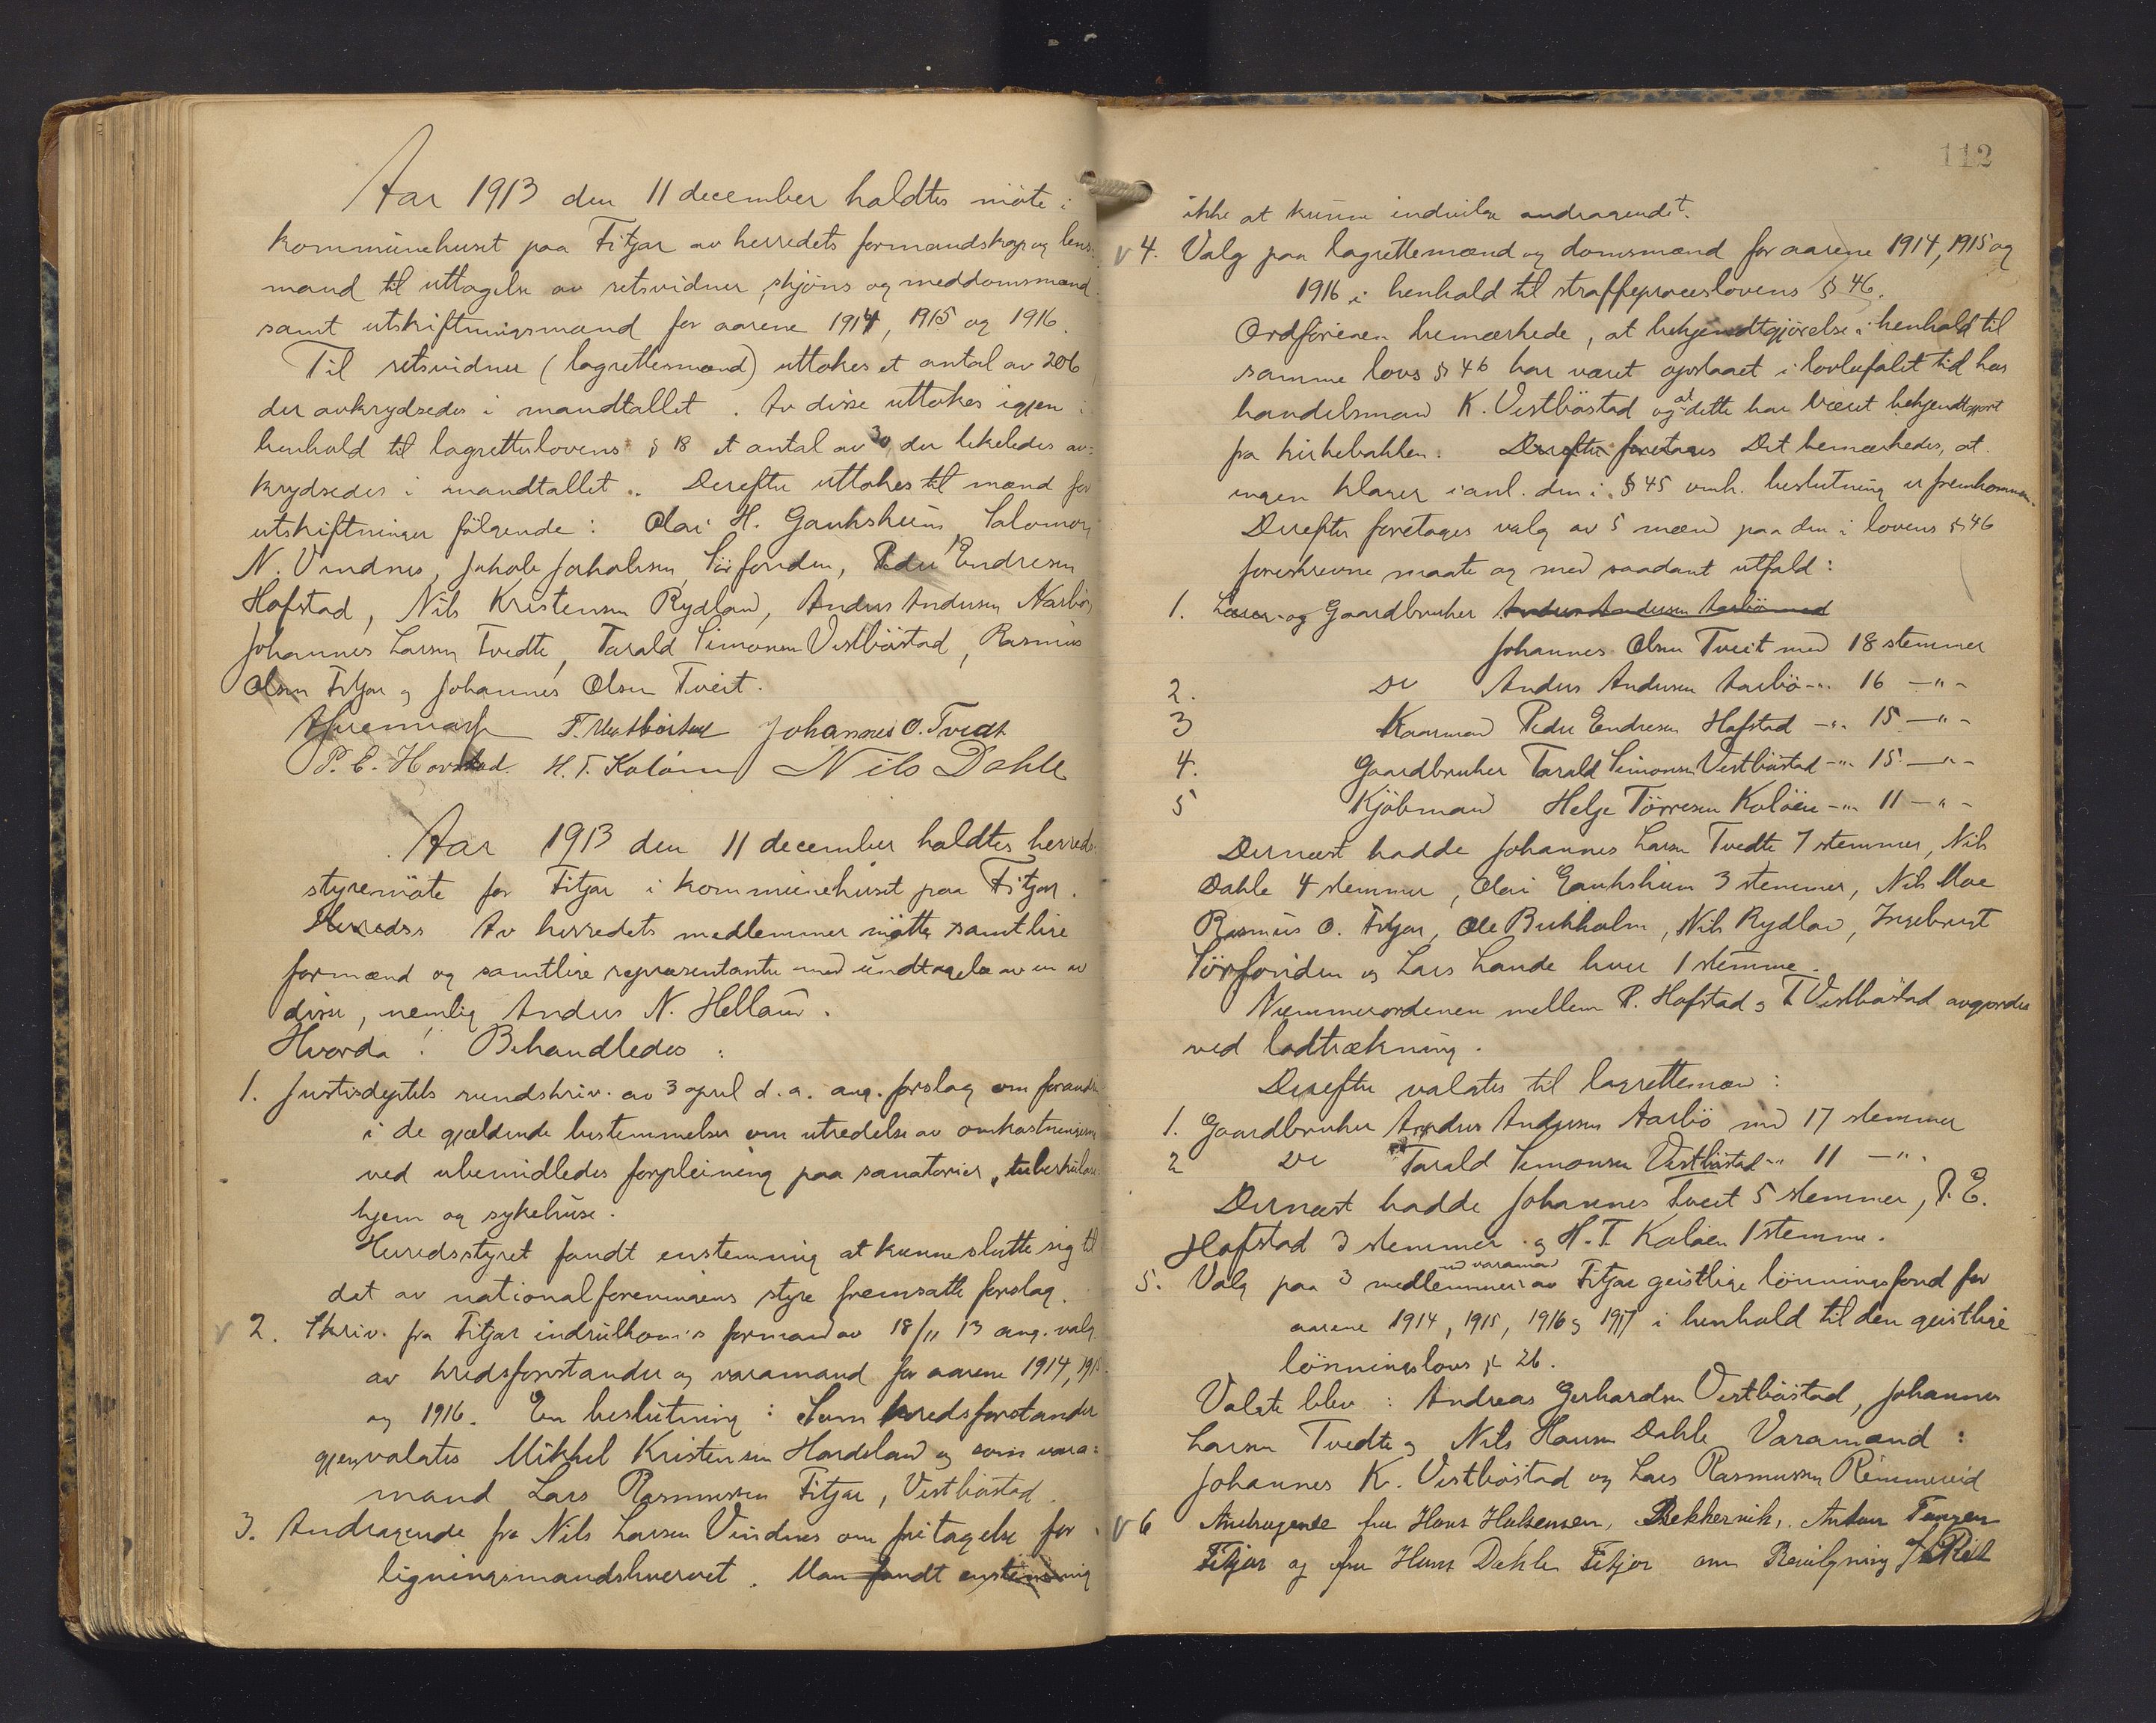 Aar 1913 den 11 december holdtes møte i
kommunehuset paa Fitjar av herredets formandskap og lens-
mand til uttagelse av retsvidner, skjøns og meddomsmænd
samt utskiftningsmænd for aarene 1914, 1915 og 1916.
Til retsvidner (lagrettesmænd) uttokes et antal av 206,
der avkrydsedes i mandtallet. Av disse uttokes igjen i
henhold til lagretteslovens § 18 et antal av 30 der likeledes av-
krydsedes i mandtallet. Derefter uttokes til mænd for
utskiftninger følgende: Olai H. Gauksheim, Salomon
N. Vindnes, Jakob Jakobsen Sørfonden, Peder Endresen
Hofstad, Nils Kristensen Rydland, Anders Andersen Aarbø,
Johannes Larsen Tvedte, Tarald Simonsen Vestbøstad, Rasmus
Olsen Fitjar og Johannes Olsen Tveit.
T. Vestbøstad Johannes O. Tvedt
P. E. Hovstad. H. T. Koløen Nils Dahle
Aar 1913 den 11 december holdtes herreds-
styremøte for Fitjar i kommunehuset paa Fitjar.
Herreds Av herredets medlemmer møtte samtlige
formænd og samtlige repræsentanter med undtagelse av en av
disse, nemlig Anders N. Helland.
Hvorda! Behandledes:
1. Justisdeptets rundskriv. av 3 april d. a. ang. forslag om forandr.
i de gjældende bestemmelser om utredelse av omkostningerne
ved ubemidledes forpleining paa sanatorier, tuberkulose
hjem og sykehuse.
Herredsstyret fandt enstemmig at kunne slutte sig til
det av nationalforeningens styre fremsatte forslag.
v 2. Skriv. fra Fitjar indrulkom's formand av 18/11 13 ang. valg
av kredsforstander og varamand for aarene 1914, 1915
og 1916. En beslutning: Som kredsforstander
gjenvalgtes Mikkel Kristensen Hardeland og som vara-
mand Lars Rasmussen Fitjar, Vestbøstad.
3. Andragende fra Nils Larsen Vindnes om fritagelse for
ligningsmandshvervet. Man fandt enstemmig
112
ikke at kunne indvilge andragendet.
v 4. Valg paa lagrettemænd og domsmænd for aarene 1914, 1915 og
1916 i henhold til straffeproceslovens § 46.
Ordføreren bemærkede, at bekjendtgjørelse i henhold til
samme lovs § 46 har været opslaaet i lovbefalet tid hos
handelsmand K. Vestbøstad og at dette har været bekjendtgjort
fra kirkebakken. Derefter foretages Det bemærkedes, at
ingen klager i anl. den i § 45 omh. beslutning er fremkommen.
Derefter foretages valg av 5 mænd paa den i lovens § 46
foreskrevne maate og med saadant utfald:
1. Lærer og Gaardbruker Anders Andersen Aarbø med
Johannes Olsen Tveit med 18 stemmer
2. Do Anders Andersen Aarbø -"- 16 -"-
3 Kaarmand Peder Endresen Hofstad -"- 15 -"-
4. Gaardbruker Tarald Simonsen Vestbøstad -"- 15 -"-
5 Kjøbmand Helge Tørresen Koløen -"- 11 -"-
Dernæst hadde Johannes Larsen Tvedte 7 stemmer, Nils
Dahle 4 stemmer, Olai Gauksheim 3 stemmer, Nils Moe
Rasmus O. Fitjar, Ole Birkholm, Nils Rydland, Ingebregt
Sørfonden og Lars Lande hver 1 stemme.
Nummerordenen mellem P. Hofstad og T. Vestbøstad avgjordes
ved lodtrækning.
Derefter valgtes til lagrettemænd:
1. Gaardbruker Anders Andersen Aarbø med 17 stemmer
2 Do Tarald Simonsen Vestbøstad -"- 11 -"-
Dernæst hadde Johannes Tveit 5 stemmer, P. E.
Hofstad 3 stemmer og H. T. Koløen 1 stemme.
5. Valg paa 3 medlemmer med varamænd av Fitjar geistlige lønningsfond for
aarene 1914, 1915, 1916 og 1917 i henhold til den geistlige
lønningslovs § 26.
Valgte blev: Andreas Gerhardsen Vestbøstad, Johannes
Larsen Tvedte og Nils Hansen Dahle Varamænd:
Johannes K. Vestbøstad og Lars Rasmussen Rimmereid
v 6 Andragende fra Hans Hakensen, Bekkervik, Anton Tangen
Fitjar og fra Hans Dahle Fitjar om Bevilgning